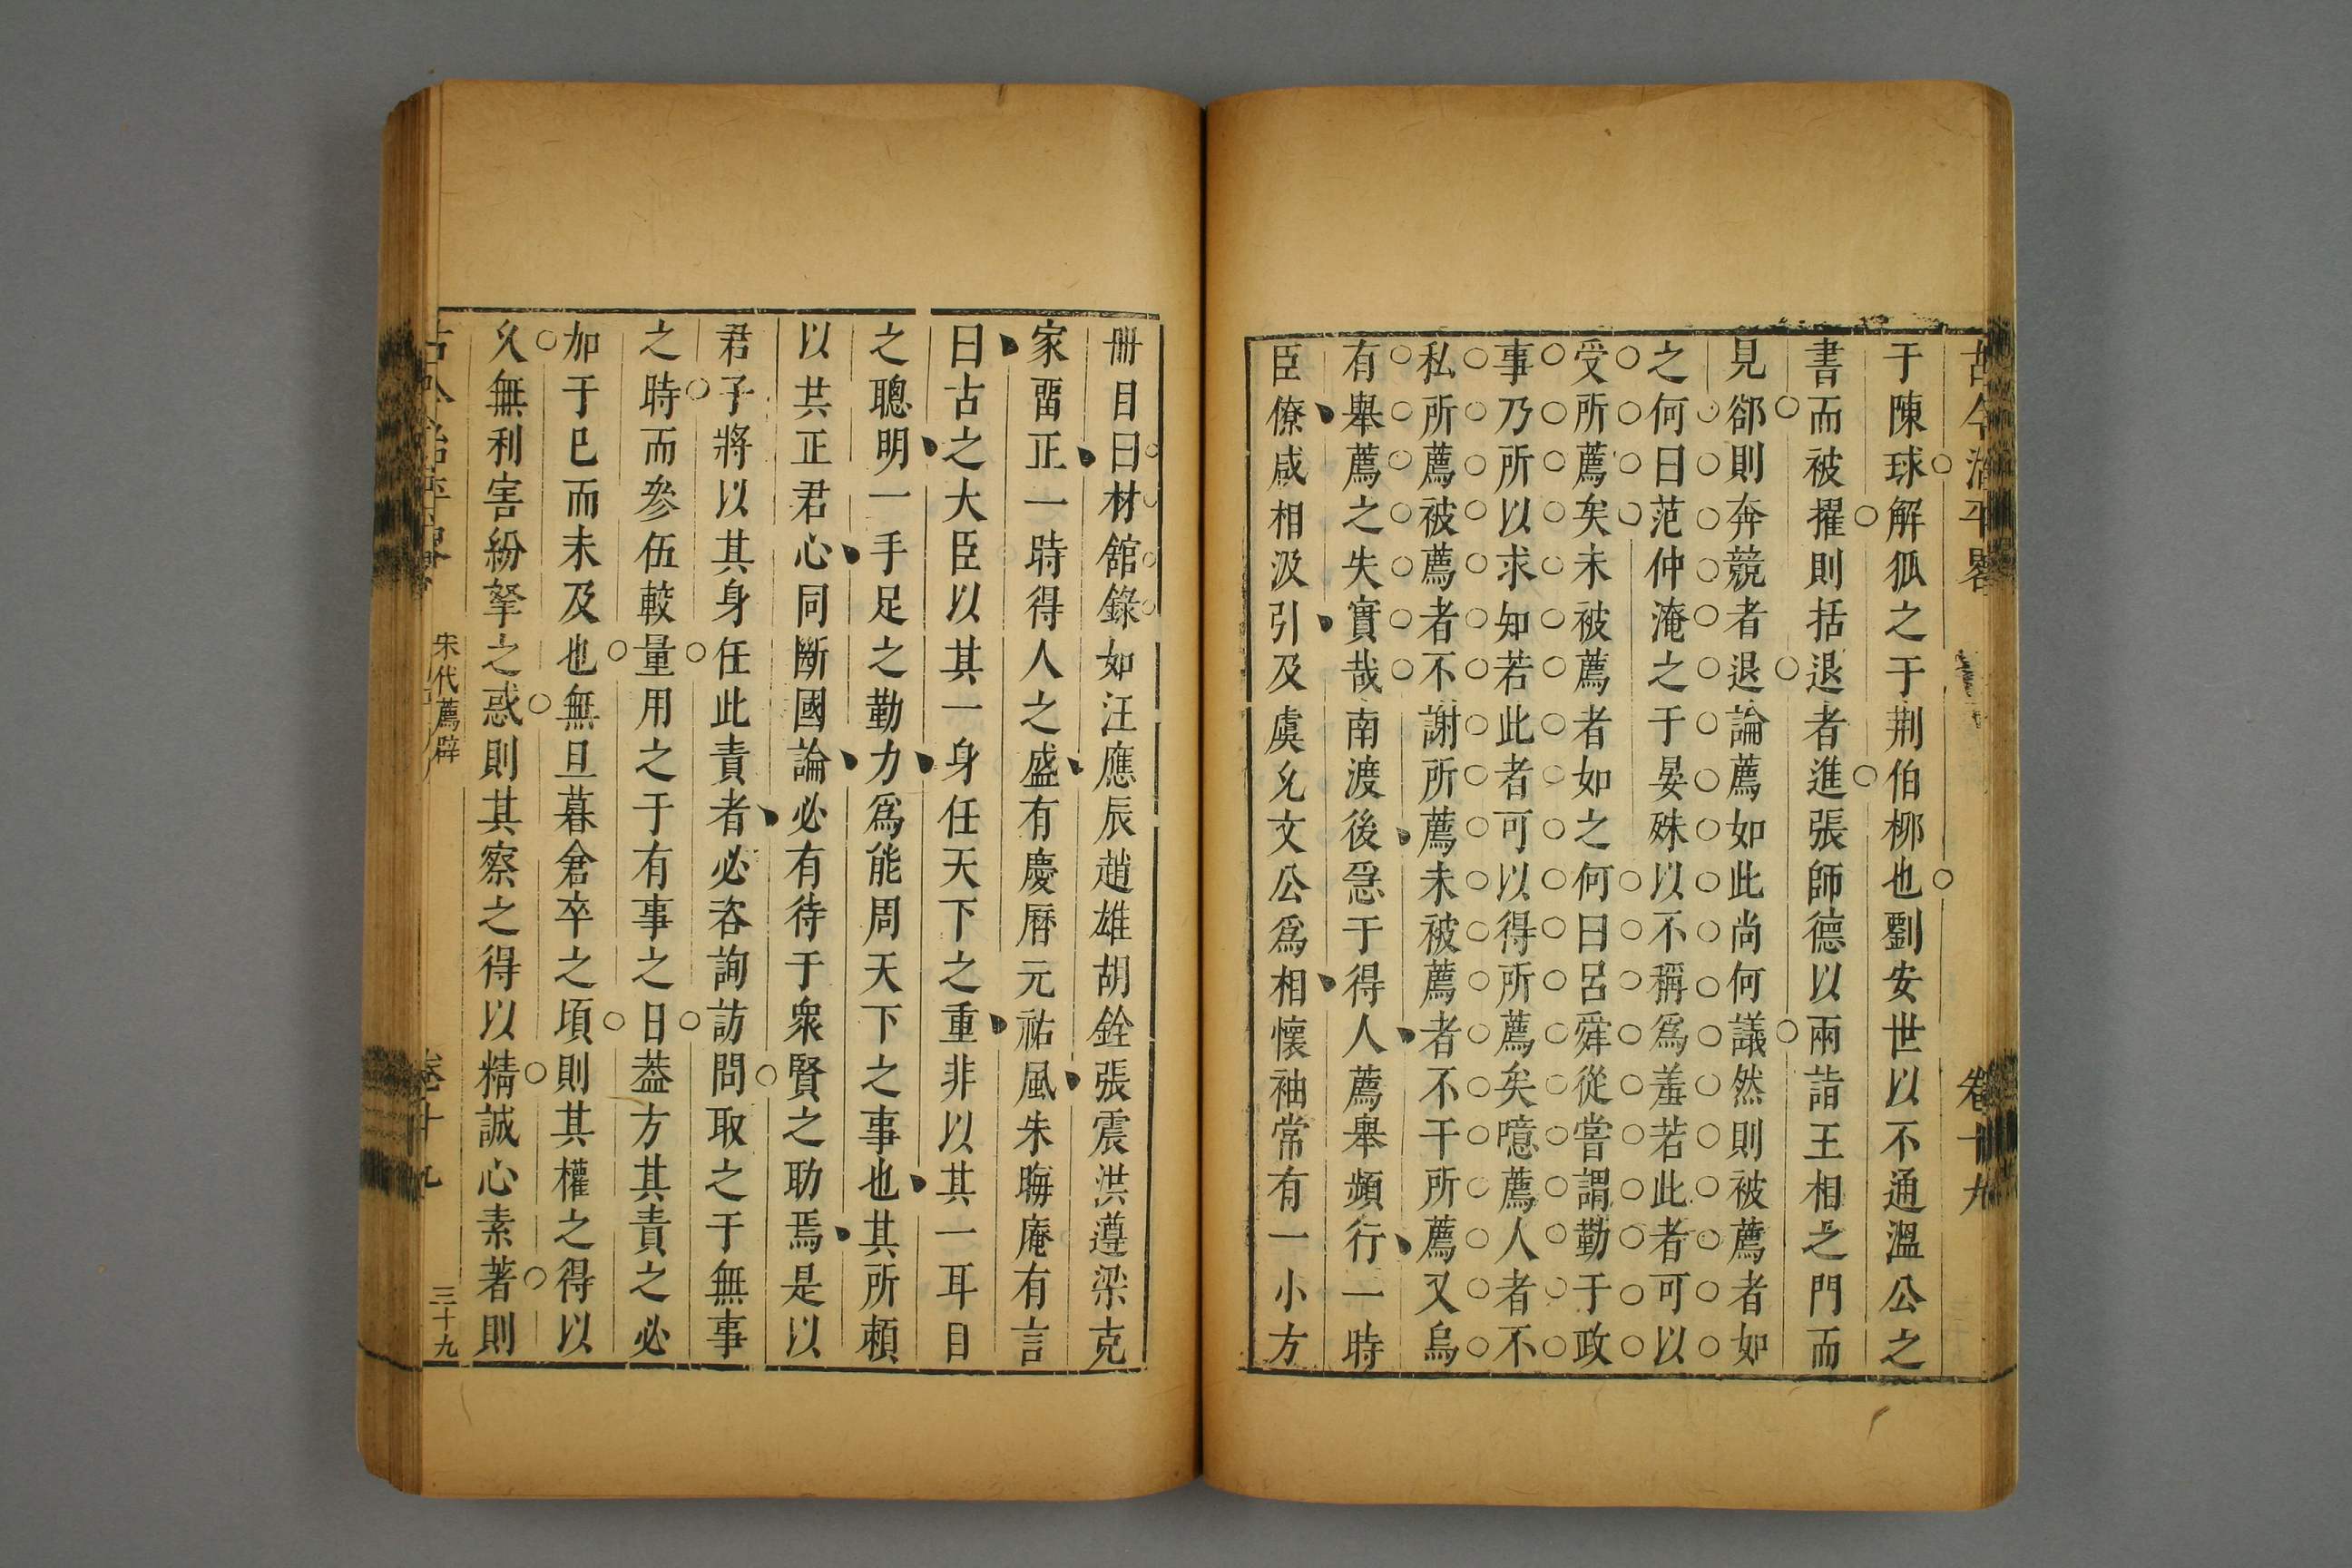 古今治平畧 卷十九
于陳球解狐之于荆伯柳也劉安世以不通溫公之
書而被擢則括退者進張師德以兩詣王相之門而
見郤則奔競者退論薦如此尚何議然則被薦者如
之何曰范仲淹之于晏殊以不稱爲羞若此者可以
受所薦矣未被薦者如之何曰呂舜從嘗謂勤于政
事乃所以求知若此者可以得所薦矣噫薦人者不
私所薦被薦者不謝所薦未被薦者不干所薦又烏
有舉薦之失實哉南渡後急于得人薦舉頻行一時
臣僚咸相汲引及虞允文公爲相懷袖常有一小方
冊目曰材舘錄如汪應辰趙雄胡銓張震洪遵梁克
家畱正一時得人之盛有慶曆元祐風朱晦庵有言
曰古之大臣以其一身任天下之重非以其一耳目
之聰明一手足之勤力爲能周天下之事也其所頼
以共正君心同斷國論必有待于衆賢之助焉是以
君子將以其身任此責者必咨詢訪問取之于無事
之時而參伍較量用之于有事之日葢方其責之必
加于已而未及也無旦暮倉卒之頃則其權之得以
久無利害紛拏之惑則其察之得以精誠心素著則
古今治平畧 宋代薦辟 卷十九 三十九